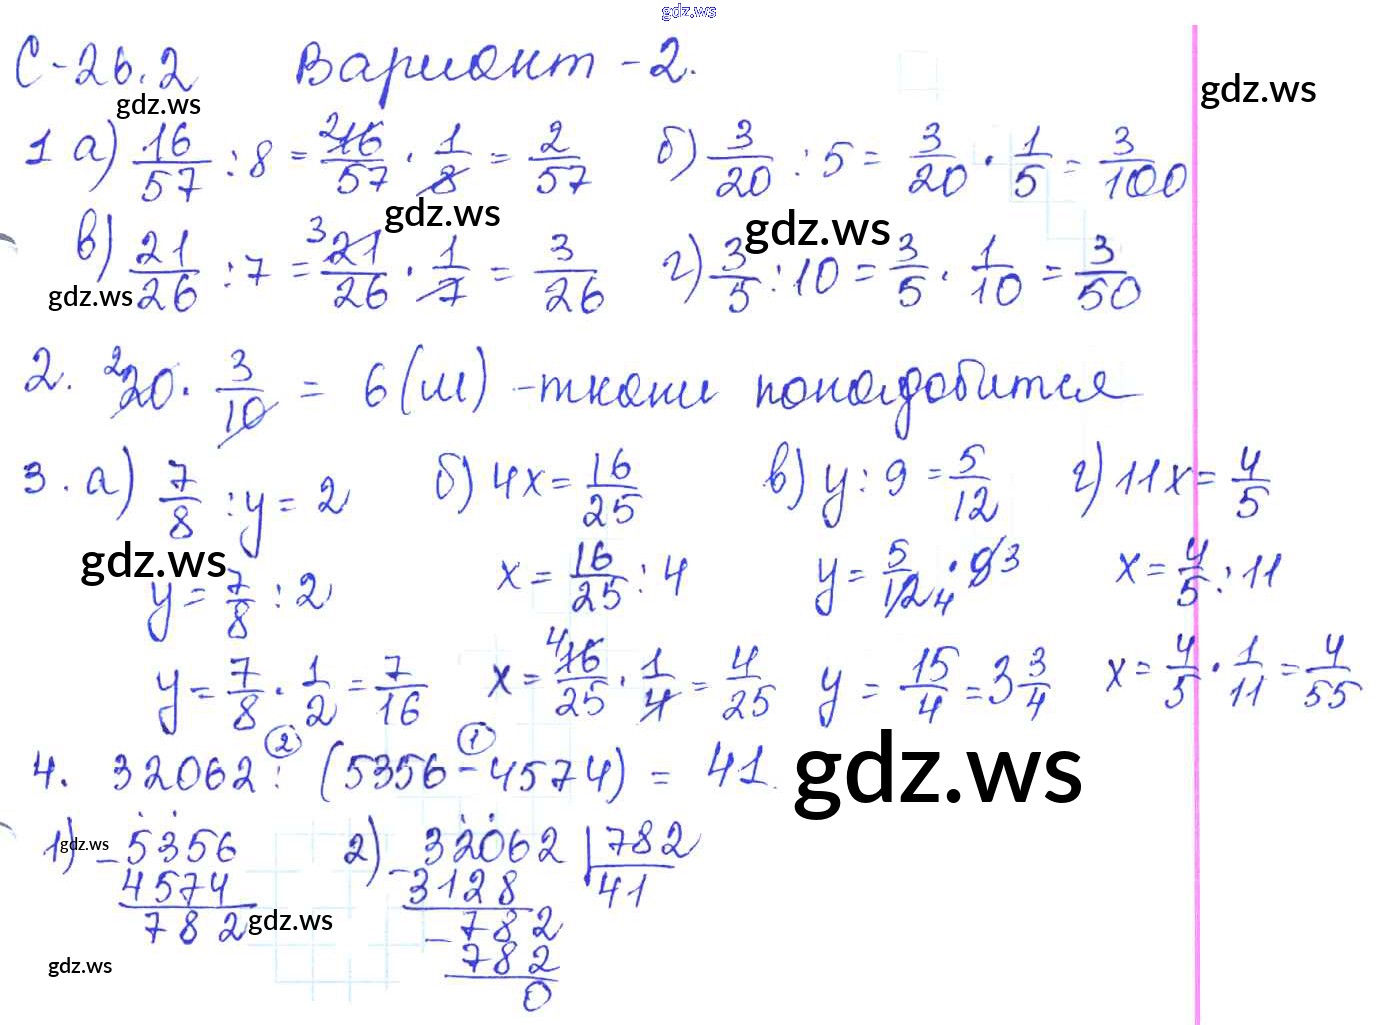 gdz.ws
С-26.2 Вариант-2.
gdz.ws gdz.ws
1 а) 16/57 : 8 = 2 16/57 · 1/8 = 2/57 б) 3/20 : 5 = 3/20 · 1/5 = 3/100
gdz.ws gdz.ws
в) 21/26 : 7 = 3 21/26 · 1/7 = 3/26 г) 3/5 : 10 = 3/5 · 1/10 = 3/50
gdz.ws
2. 2 20 · 3/10 = 6 (м) - ткани понадобится
3. а) 7/8 : y = 2 б) 4x = 16/25 в) y : 9 = 5/12 г) 11x = 4/5
gdz.ws
y = 7/8 : 2 x = 16/25 : 4 y = 5/12 4 · 9 3 x = 4/5 : 11
y = 7/8 · 1/2 = 7/16 x = 4 16/25 · 1/4 = 4/25 y = 15/4 = 3 3/4 x = 4/5 · 1/11 = 4/55
② ①
4. 32062 : (5356 - 4574) = 41. gdz.ws
1) gdz.ws - 5356 2) - 32062 | 782
4574 3128 41
782 gdz.ws - 782
gdz.ws 782
0